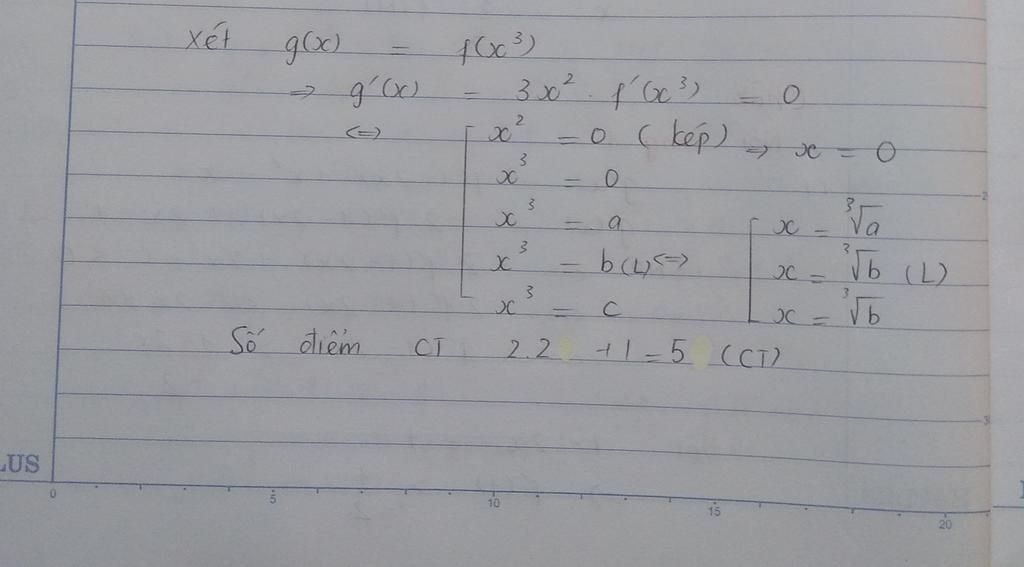 Xét g(x) = f(x³)
⇒ g'(x) = 3x² . f'(x³) = 0
⇔ [ x² = 0 (kép) ⇒ x = 0
x³ = 0
x³ = a [ x = ∛a
x³ = b (L) ⇔ x = ∛b (L)
x³ = c x = ∛b
Số điểm CT 2.2 +1 = 5 (CT)
LUS
0 5 10 15 20